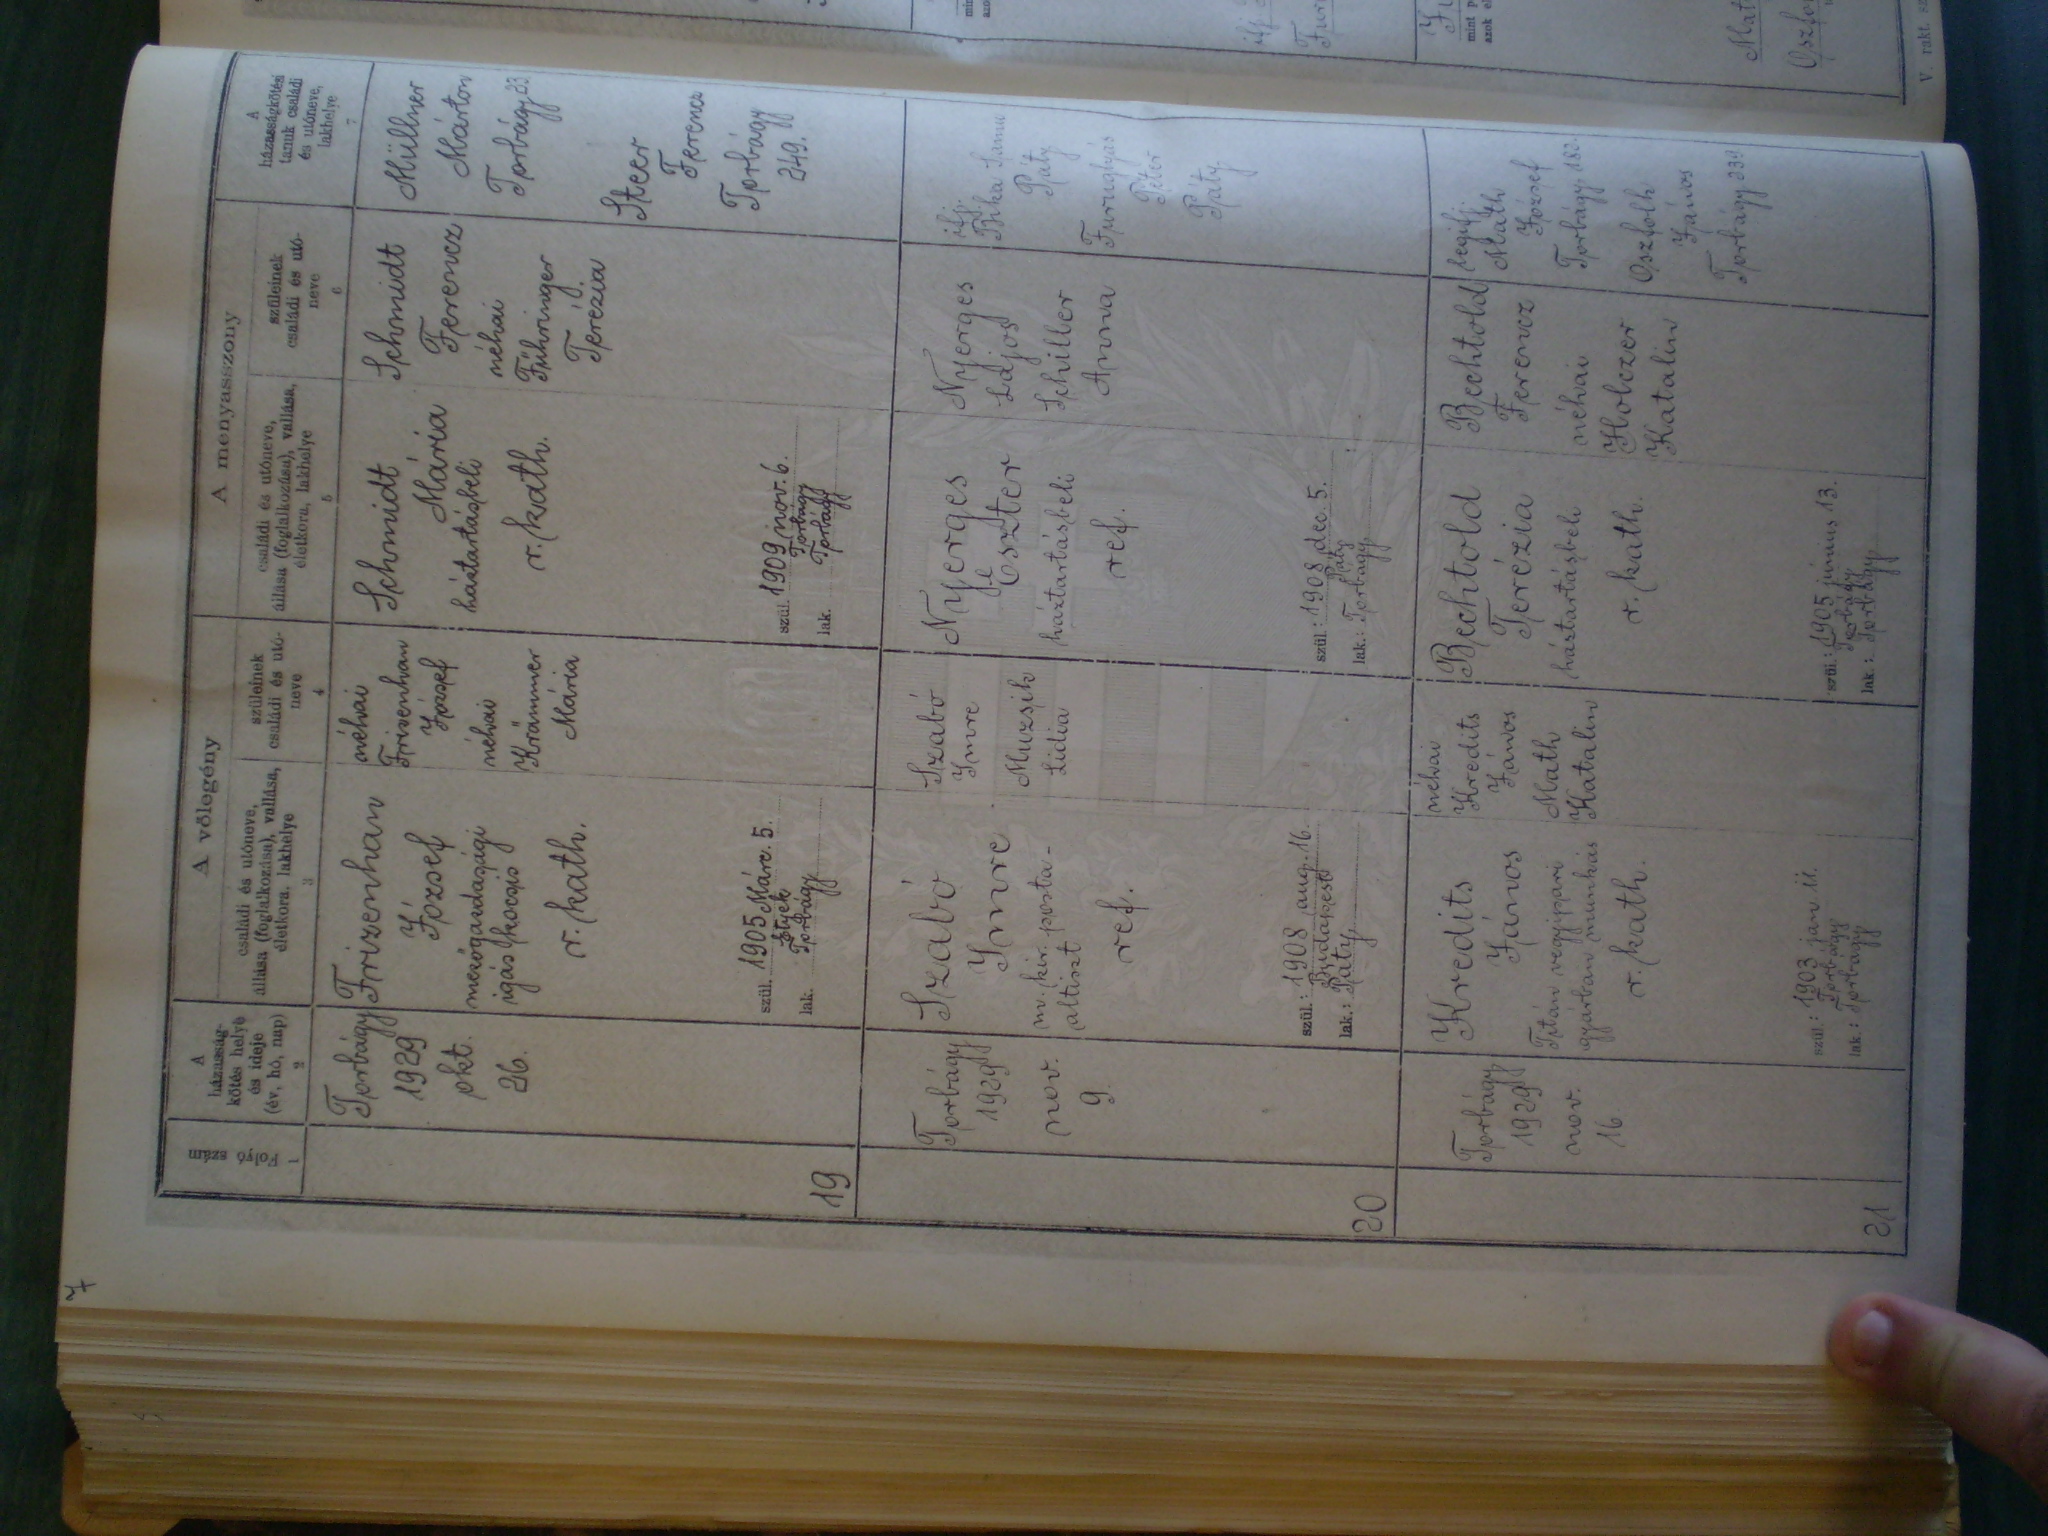 7
A vőlegény
A menyasszony
A
házasság-
kötés helye
és ideje
(év, hó, nap)
2
családi és utóneve,
állása (foglalkozása), vallása,
életkora, lakhelye
3
szüleinek
családi és utó-
neve
4
családi és utóneve,
állása (foglalkozása), vallása,
életkora, lakhelye
5
szüleinek
családi és utó-
neve
6
A
házasságkötési
tanuk családi
és utóneve,
lakhelye
7
1
19
Torbágy
1929
okt.
26.
Frizenhan
József
mezőgazdasági
igás kocsis
r. kath.
szül. 1905 Márc. 5.
Etyek
lak. Torbágy
néhai
Frizenhan
József
néhai
Krämmer
Mária
Schmidt
Mária
háztartásbeli
r. kath.
szül. 1909 nov. 6.
Torbágy
lak. Torbágy
Schmidt
Ferencz
néhai
Führinger
Terézia
Müllner
Márton
Torbágy 23
Steer
Ferencz
Torbágy
249.
20
Torbágy
1929
nov.
9.
Szabó
Imre
m. kir. posta-
altiszt
ref.
szül.: 1908 aug. 16.
Budapest
lak.: Páty
Szabó
Imre
Muzsik
Lidia
Nyerges
Eszter
háztartásbeli
ref.
szül.: 1908 dec. 5.
Páty
lak.: Torbágy
Nyerges
Lajos
Schilber
Anna
ifj.
Páty
Péter
Páty
21
Torbágy
1929
nov.
16
Kredits
János
Titán vegyipari
gyárban munkás
r. kath.
szül.: 1903 jan 11.
Torbágy
lak.: Torbágy
néhai
Kredits
János
Math
Katalin
Bechtold
Terézia
háztartásbeli
r. kath.
szül.: 1905 június 13.
Torbágy
lak.: Torbágy
Bechtold
Ferencz
néhai
Holczer
Katalin
legifj.
Math
József
Torbágy 182.
Oszfolk
János
Torbágy 239
V. rakt. sz